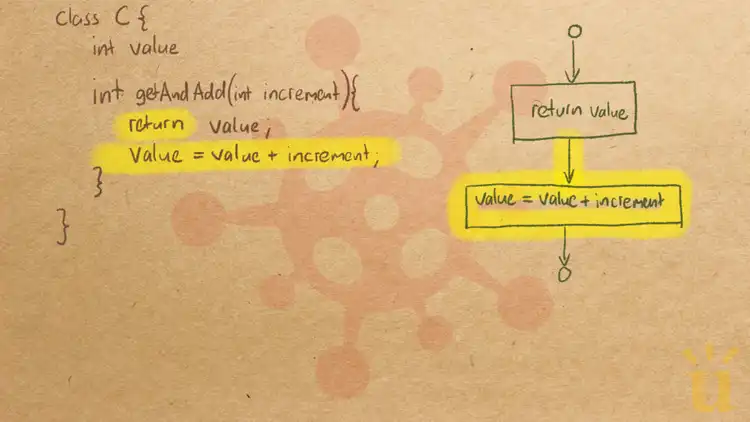 Class C {
int value
int getAndAdd(int increment){
return value;
Value = value + increment;
}
}
return value
value = value + increment
u